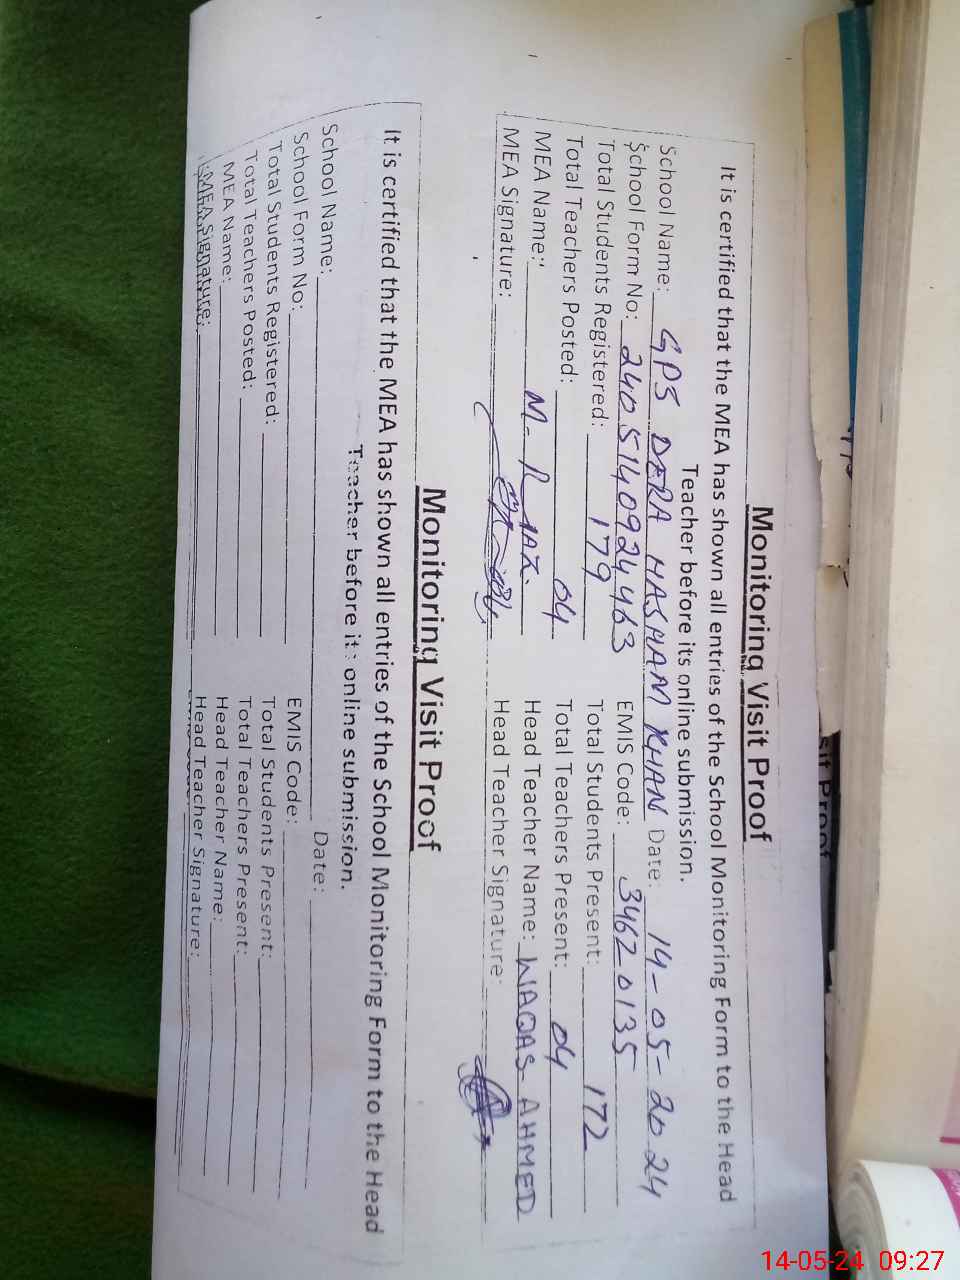 Monitoring Visit Proof
It is certified that the MEA has shown all entries of the School Monitoring Form to the Head
Teacher before its online submission.
School Name: GPS DERA HASHAM KHAN Date: 14-05-2024
School Form No: 2405140924463 EMIS Code: 34620135
Total Students Registered: 179 Total Students Present: 172
Total Teachers Posted: 04 Total Teachers Present: 04
MEA Name: M-RIAZ. Head Teacher Name: WAQAS AHMED
MEA Signature: Head Teacher Signature:
Monitoring Visit Proof
It is certified that the MEA has shown all entries of the School Monitoring Form to the Head
Teacher before its online submission.
School Name: Date:
School Form No: EMIS Code:
Total Students Registered: Total Students Present:
Total Teachers Posted: Total Teachers Present:
MEA Name: Head Teacher Name:
MEA Signature: Head Teacher Signature:
sit Proof
14-05-24 09:27